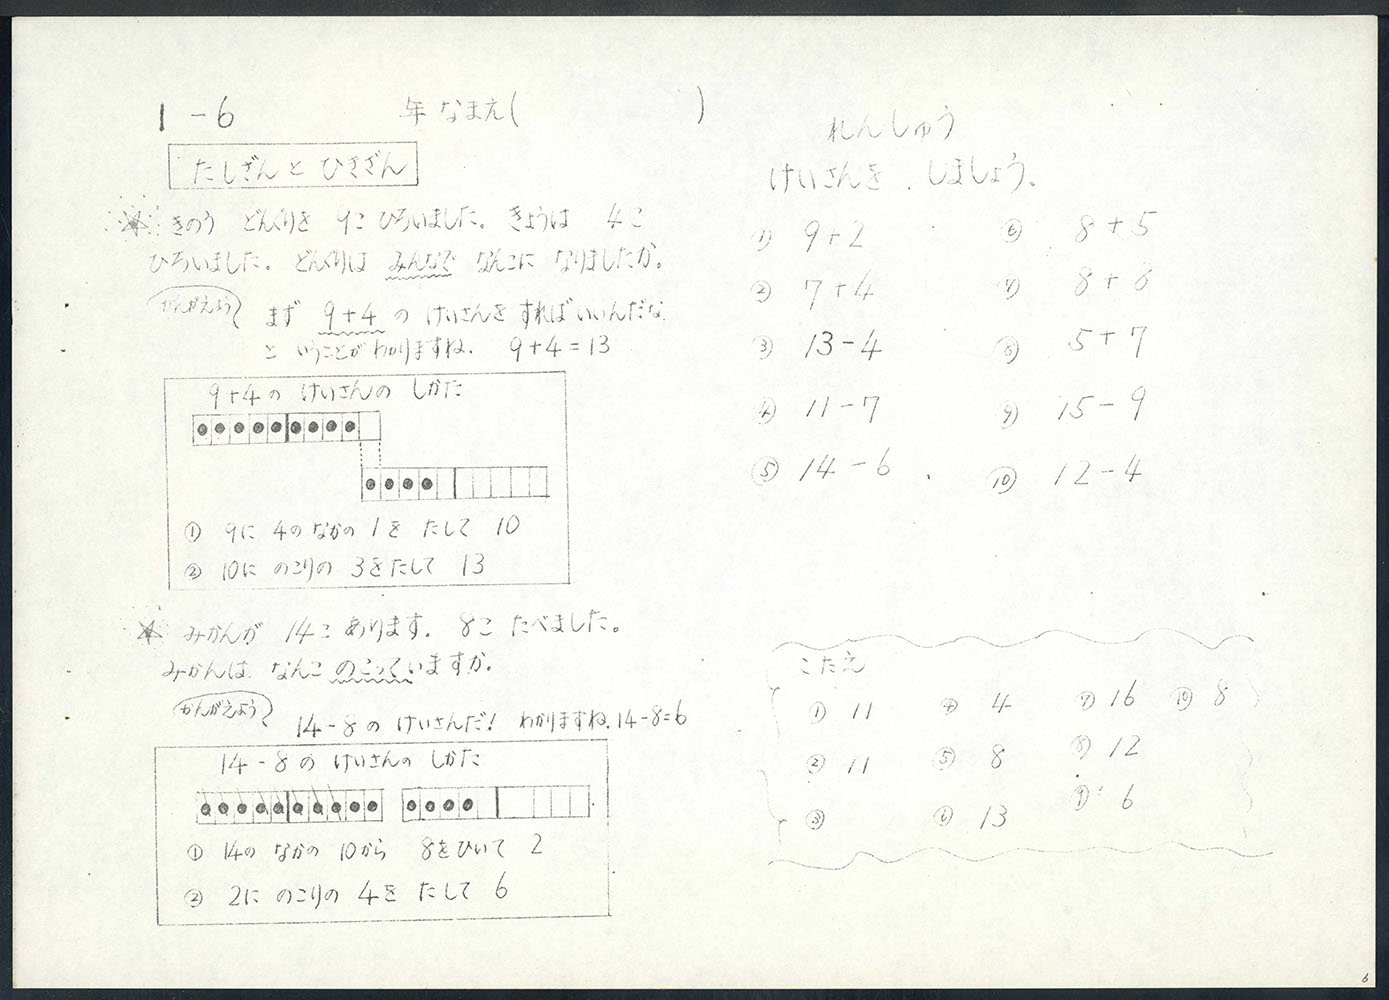 1－6　年 なまえ(　　)
たしざんと ひきざん
きのう どんぐりを 9こ ひろいました。きょうは 4こ
ひろいました。どんぐりは みんなで なんこに なりましたか。
かんがえよう
まず 9+4 の けいさんを すればいいんだな
と いうことが わかりますね. 9+4=13
9+4の けいさんの しかた
① 9に 4の なかの 1を たして 10
② 10に のこりの 3をたして 13
みかんが 14こ あります. 8こ たべました。
みかんは なんこ のこっていますか.
かんがえよう
14-8の けいさんだ! わかりますね. 14-8=6
14-8の けいさんの しかた
① 14の なかの 10から 8をひいて 2
② 2に のこりの 4を たして 6
れんしゅう
けいさんを しましょう.
① 9+2
② 7+4
③ 13-4
④ 11-7
⑤ 14-6
⑥ 8+5
⑦ 8+8
⑧ 5+7
⑨ 15-9
⑩ 12-4
こたえ
① 11
② 11
③
④ 4
⑤ 8
⑥ 13
⑦ 16
⑧ 12
⑨ 6
⑩ 8
6